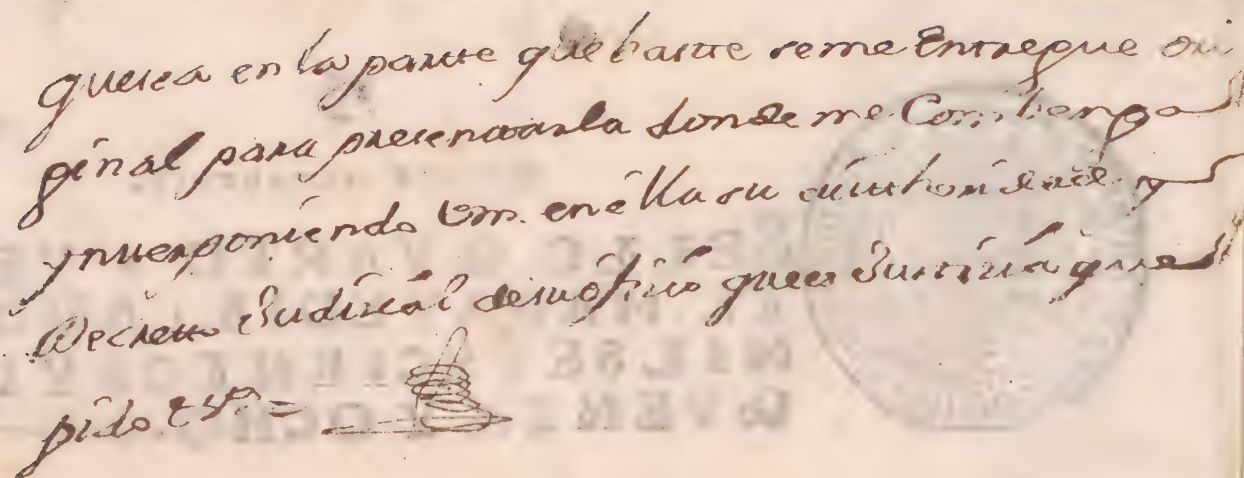 quesea en la parte que baste se me Entregue ori
ginal para presentarla donde me Combenga
ynterponiendo Vm. en élla su authoridad y
Decretto Judicial de su ofisio que es Justicia que
pido &ª =